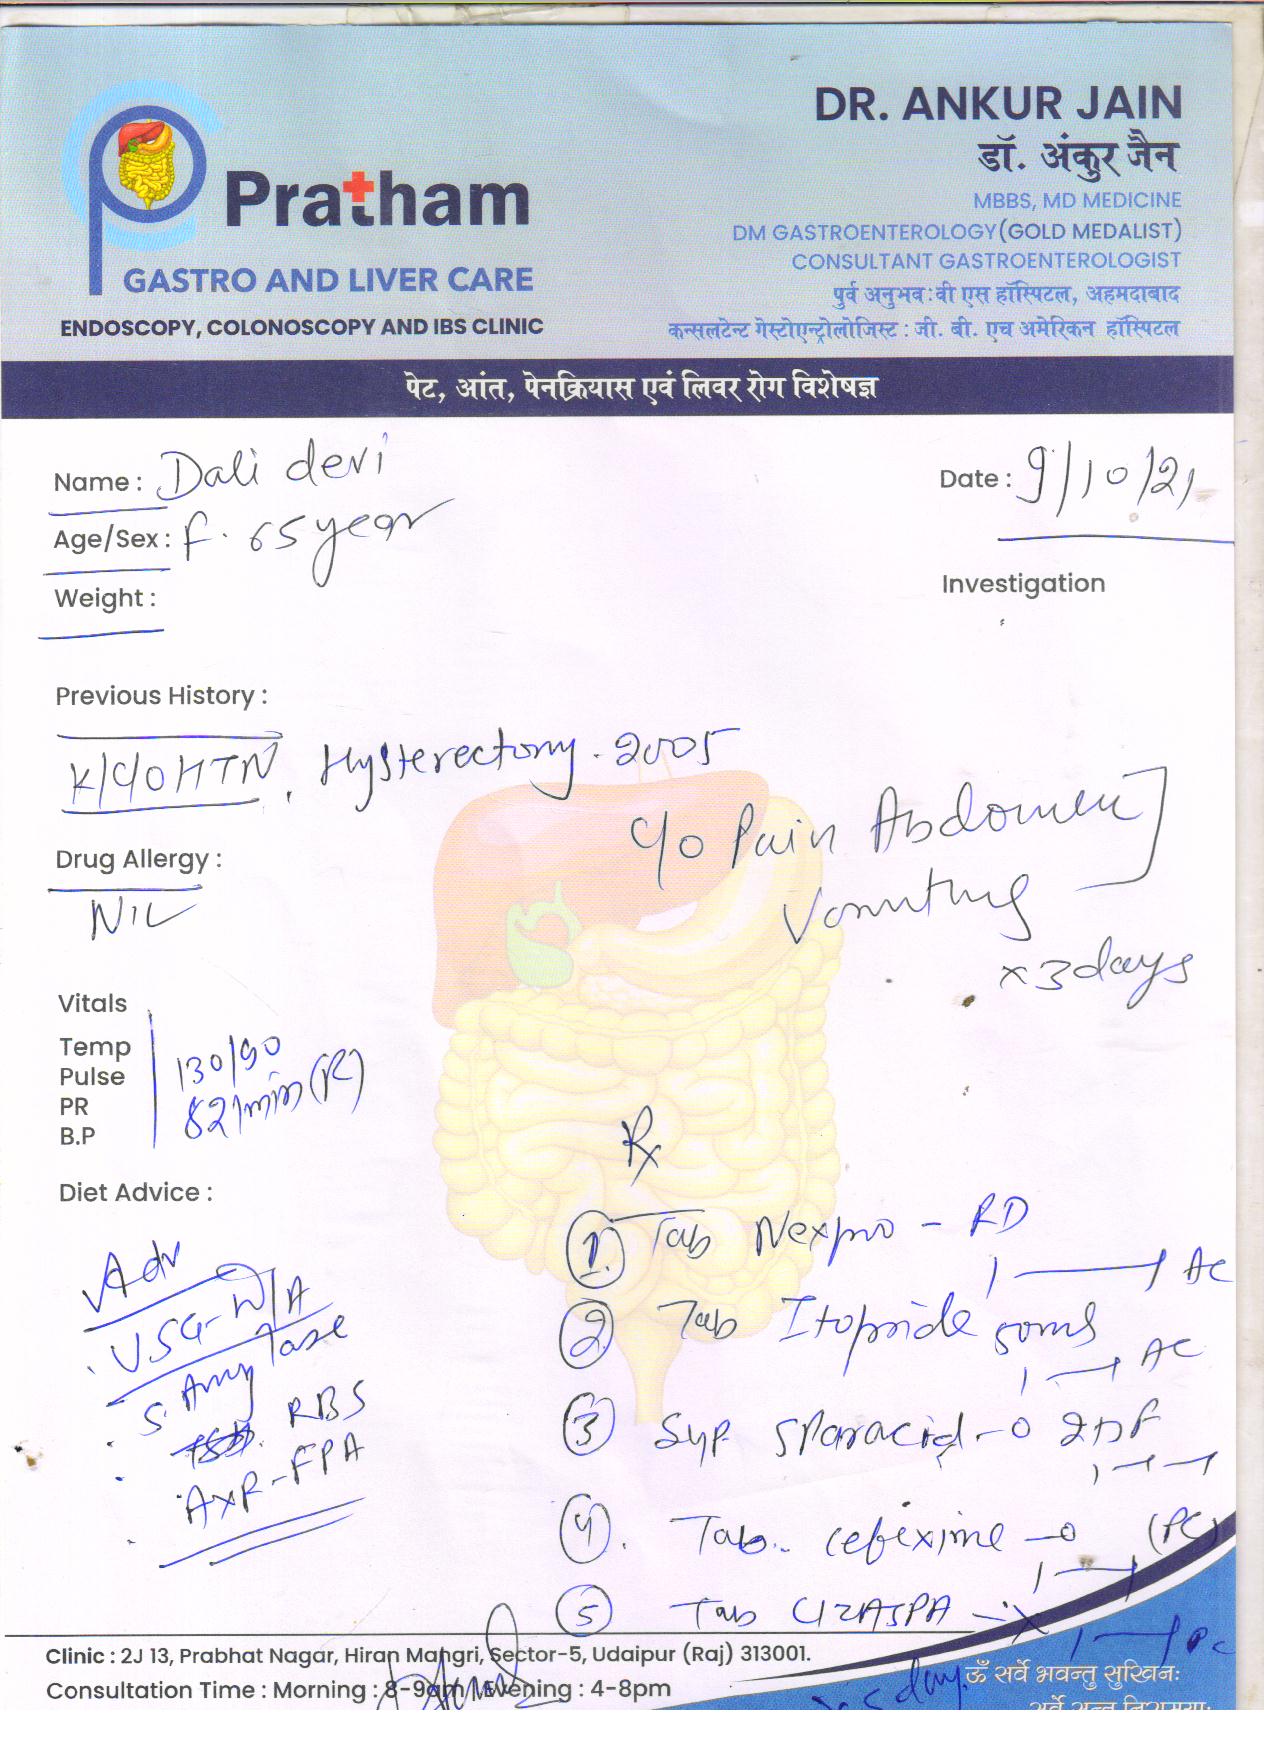 Pratham
GASTRO AND LIVER CARE
ENDOSCOPY, COLONOSCOPY AND IBS CLINIC
DR. ANKUR JAIN
डॉ. अंकुर जैन
MBBS, MD MEDICINE
DM GASTROENTEROLOGY(GOLD MEDALIST)
CONSULTANT GASTROENTEROLOGIST
पुर्व अनुभव:वी एस हॉस्पिटल, अहमदाबाद
कन्सलटेन्ट गेस्टोएन्ट्रोलोजिस्ट : जी. बी. एच अमेरिकन हॉस्पिटल
पेट, आंत, पेनक्रियास एवं लिवर रोग विशेषज्ञ
Name : Dali devi
Date : 9/10/21
Age/Sex : F. 65 year
Weight :
Investigation
Previous History :
K/C/O HTN, Hysterectomy. 2005
C/o Pain Abdomen
Vomiting
x 3 days
Drug Allergy :
NIL
Vitals
Temp
Pulse
PR
B.P
130/90
82/min (R)
Diet Advice :
Rx
Adv
USG-W/A
S. Amylase
RBS
AXR-FPA
1. Tab Nexpro - RD
AC
2. Tab Itopride 50mg
AC
3 Syp Sparacid-O 2
4. Tab. cefixime -O (PC)
5 Tab CIZASPA - X
PC
x 5 day.
Clinic : 2J 13, Prabhat Nagar, Hiran Mangri, Sector-5, Udaipur (Raj) 313001.
Consultation Time : Morning : 8-9am | Evening : 4-8pm
ॐ सर्वे भवन्तु सुखिनः
सर्वे सन्तु निरामयाः